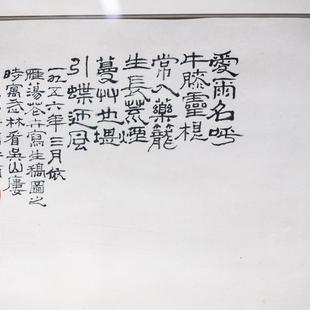 愛雨名呼
牛膝靈根
常入藥籠
生長蒸煙
蔓艸也堪
引蝶迎風
一九五六年三月依
雁湯花卉寫生稿圖之
時寓武林看吳山廔